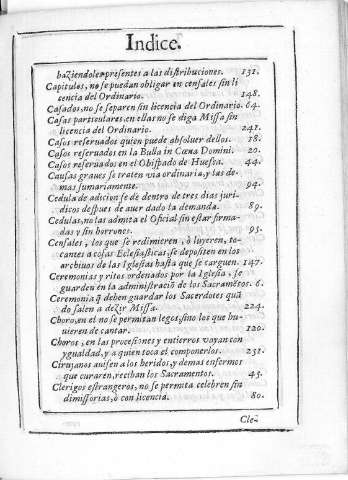 Indice.
haziendoles presentes a las distribuciones. 131.
Capitulos, no se puedan obligar en censales sin li
cencia del Ordinario. 148.
Casados, no se separen sin licencia del Ordinario. 64.
Casas particulares, en ellas no se diga Missa sin
licencia del Ordinario. 241.
Casos reseruados quien puede absoluer dellos. 18.
Casos reseruados en la Bulla in Cœna Domini. 20.
Casos reseruados en el Obispado de Huesca. 44.
Causas graues se traten via ordinaria, y las de-
mas sumariamente. 94.
Cedula de adicion se dè dentro de tres dias juri-
dicos despues de auer dado la demanda. 89.
Cedulas, no las admita el Oficial sin estar firma-
das y sin borrones. 93.
Censales, los que se redimieren, ò luyeren, to-
cantes a cosas Eclesiasticas, se depositen en los
archiuos de las Iglesias hasta que se carguen. 147.
Ceremonias y ritos ordenados por la Iglesia, se
guarden en la administraciō de los Sacramētos. 6.
Ceremonia q̃ deben guardar los Sacerdotes quā
do salen a dezir Missa. 224.
Choro, en el no se permitan legos, sino los que hu-
uieren de cantar. 120.
Choros, en las processiones y entierros vayan con
ygualdad, y a quien toca el componerlos. 231.
Cirujanos auisen a los heridos, y demas enfermos
que curaren, reciban los Sacramentos. 45.
Clerigos estrangeros, no se permita celebren sin
dimissorias, ò con licencia. 80.
Cle-